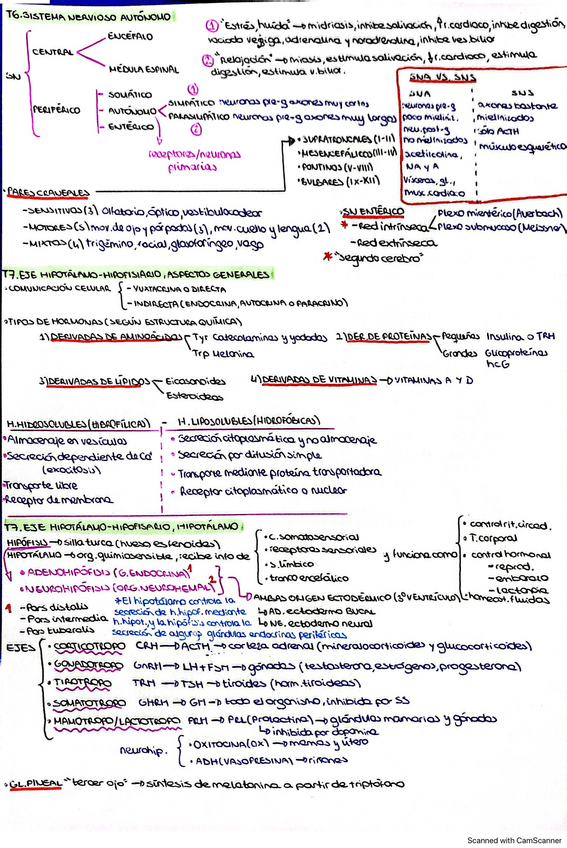 T6. SISTEMA NERVIOSO AUTÓNOMO
① "Estrés, huida" → midriasis, inhibe salivación, ↑fr. cardiaco, inhibe digestión,
vaciado vejiga, adrenalina y noradrenalina, inhibe ves. biliar
② "Relajación" → miosis, estimula salivación, ↓fr. cardiaco, estimula
digestión, estimula v. biliar.
SN
CENTRAL
ENCÉFALO
MÉDULA ESPINAL
PERIFÉRICO
- SOMÁTICO
- AUTÓNOMO
- ENTÉRICO
①
SIMPÁTICO neuronas pre-g axones muy cortos
PARASIMPÁTICO neuronas pre-g axones muy largos
②
receptores/neuronas
primarias
SNA VS. SNS
SNA
neuronas pre-g
poco mielini.
neu. post-g
no mielinizados
acetilcolina,
NA y A
Vísceras, gl.,
musc. cardiaco
SNS
axones bastante
mielinizados
sólo ACTH
músculo esquelético
• PARES CRANEALES
• SUPRATRONCALES (I-II)
• MESENCEFÁLICOS (III-IV)
• PONTINOS (V-VIII)
• BULBARES (IX-XII)
- SENSITIVOS (3) Olfatorio, óptico, vestibulococlear
- MOTORES (5) mov. de ojo y párpados (3), mov. cuello y lengua (2)
- MIXTOS (4) trigémino, facial, glosofaríngeo, vago
• SN ENTÉRICO
* - Red intrínseca
Plexo mientérico (Auerbach)
Plexo submucoso (Meissner)
- Red extrínseca
* "Segundo cerebro"
T7. EJE HIPOTÁLAMO-HIPOFISIARIO, ASPECTOS GENERALES
• COMUNICACIÓN CELULAR
- YUXTACRINA O DIRECTA
- INDIRECTA (ENDOCRINA, AUTOCRINA O PARACRINO)
• TIPOS DE HORMONAS (SEGÚN ESTRUCTURA QUÍMICA)
1) DERIVADAS DE AMINOÁCIDOS
Tyr Catecolaminas y yodadas
Trp Melanina
2) DER. DE PROTEÍNAS
Pequeñas Insulina o TRH
Grandes Glucoproteínas
hCG
3) DERIVADAS DE LÍPIDOS
Eicosanoides
Esteroideos
4) DERIVADAS DE VITAMINAS → VITAMINAS A Y D
H. HIDROSOLUBLES (HIDROFÍLICAS) - H. LIPOSOLUBLES (HIDROFÓBICAS)
• Almacenaje en vesículas
• Secreción dependiente de Ca
(exocitosis)
• Transporte libre
• Receptor de membrana
• Secreción citoplasmática y no almacenaje
• Secreción por difusión simple
• Transporte mediante proteína transportadora
• Receptor citoplasmático o nuclear
T7. EJE HIPOTÁLAMO-HIPOFISARIO, HIPOTÁLAMO
HIPÓFISIS → silla turca (hueso esfenoides)
HIPOTÁLAMO → org. quimiosensible, recibe info de
• C. somatosensorial
• receptores sensoriales
• s. límbico
• tronco encefálico
y funciona como
• control rit. circad.
• T. corporal
• control hormonal
- reprod.
- embarazo
- lactancia
• homeost. fluidos
• ADENOHIPÓFISIS (G. ENDOCRINA) 1
• NEUROHIPÓFISIS (ORG. NEUROHEMAL) 2
AMBAS ORIGEN ECTODÉRMICO (3º VENTRÍCULO)
↳ AD. ectodermo bucal
↳ NE. ectodermo neural
1 - Pars distalis
- Pars intermedia
- Pars tuberalis
* El hipotálamo controla la
secreción de h. hipof. mediante
h. hipot. y la hipófisis controla la
secreción de algunas glándulas endocrinas periféricas
EJES
• CORTICOTROPO CRH → ACTH → corteza adrenal (mineralocorticoides y glucocorticoides)
• GONADOTROPO GnRH → LH + FSH → gónadas (testosterona, estrógenos, progesterona)
• TIROTROPO TRM → TSH → tiroides (horm. tiroideas)
• SOMATOTROPO GHRH → GH → todo el organismo, inhibida por SS
• MAMOTROPO/LACTOTROPO PRH → PRL (Prolactina) → glándulas mamarias y gónadas
↳ inhibida por dopamina
neurohip.
• OXITOCINA (OX) → mamas y útero
• ADH (VASOPRESINA) → riñones
• GL. PINEAL "tercer ojo" → síntesis de melatonina a partir de triptófano
Scanned with CamScanner